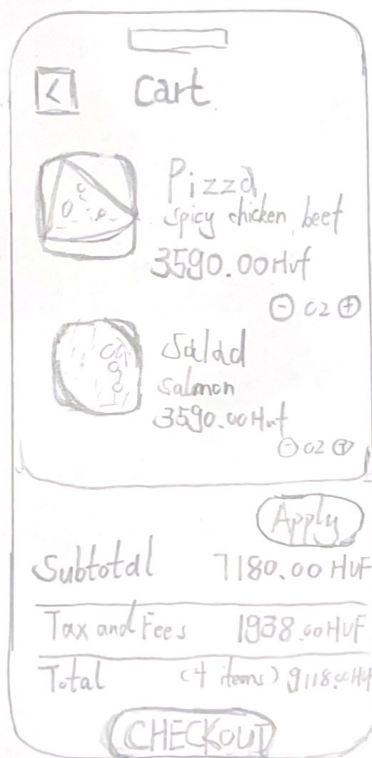 < Cart
Pizza
spicy chicken, beef
3590.00 Huf
- 02 +
Salad
salmon
3590.00 Huf
- 02 +
Apply
Subtotal 7180.00 HUF
Tax and Fees 1938.00 HUF
Total (4 items) 9118.00 HUF
CHECKOUT